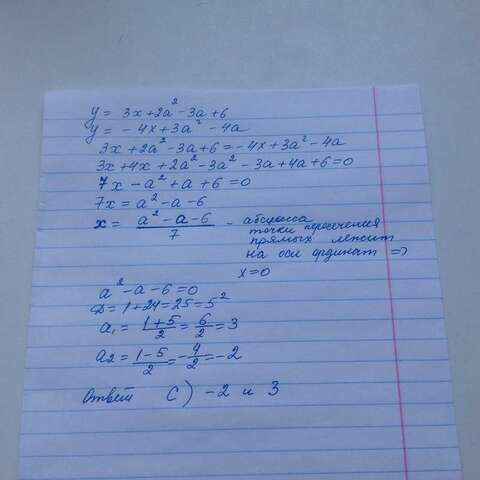 y = 3x+2a²-3a+6
y = -4x+3a²-4a
3x+2a²-3a+6=-4x+3a²-4a
3x+4x+2a²-3a²-3a+4a+6=0
7x-a²+a+6=0
7x=a²-a-6
x= (a²-a-6)/7 - абсцисса
точки пересечения
прямых лежит
на оси ординат =>
x=0
a²-a-6=0
D=1+24=25=5²
a₁=(1+5)/2=6/2=3
a₂=(1-5)/2=-4/2=-2
ответ C) -2 и 3